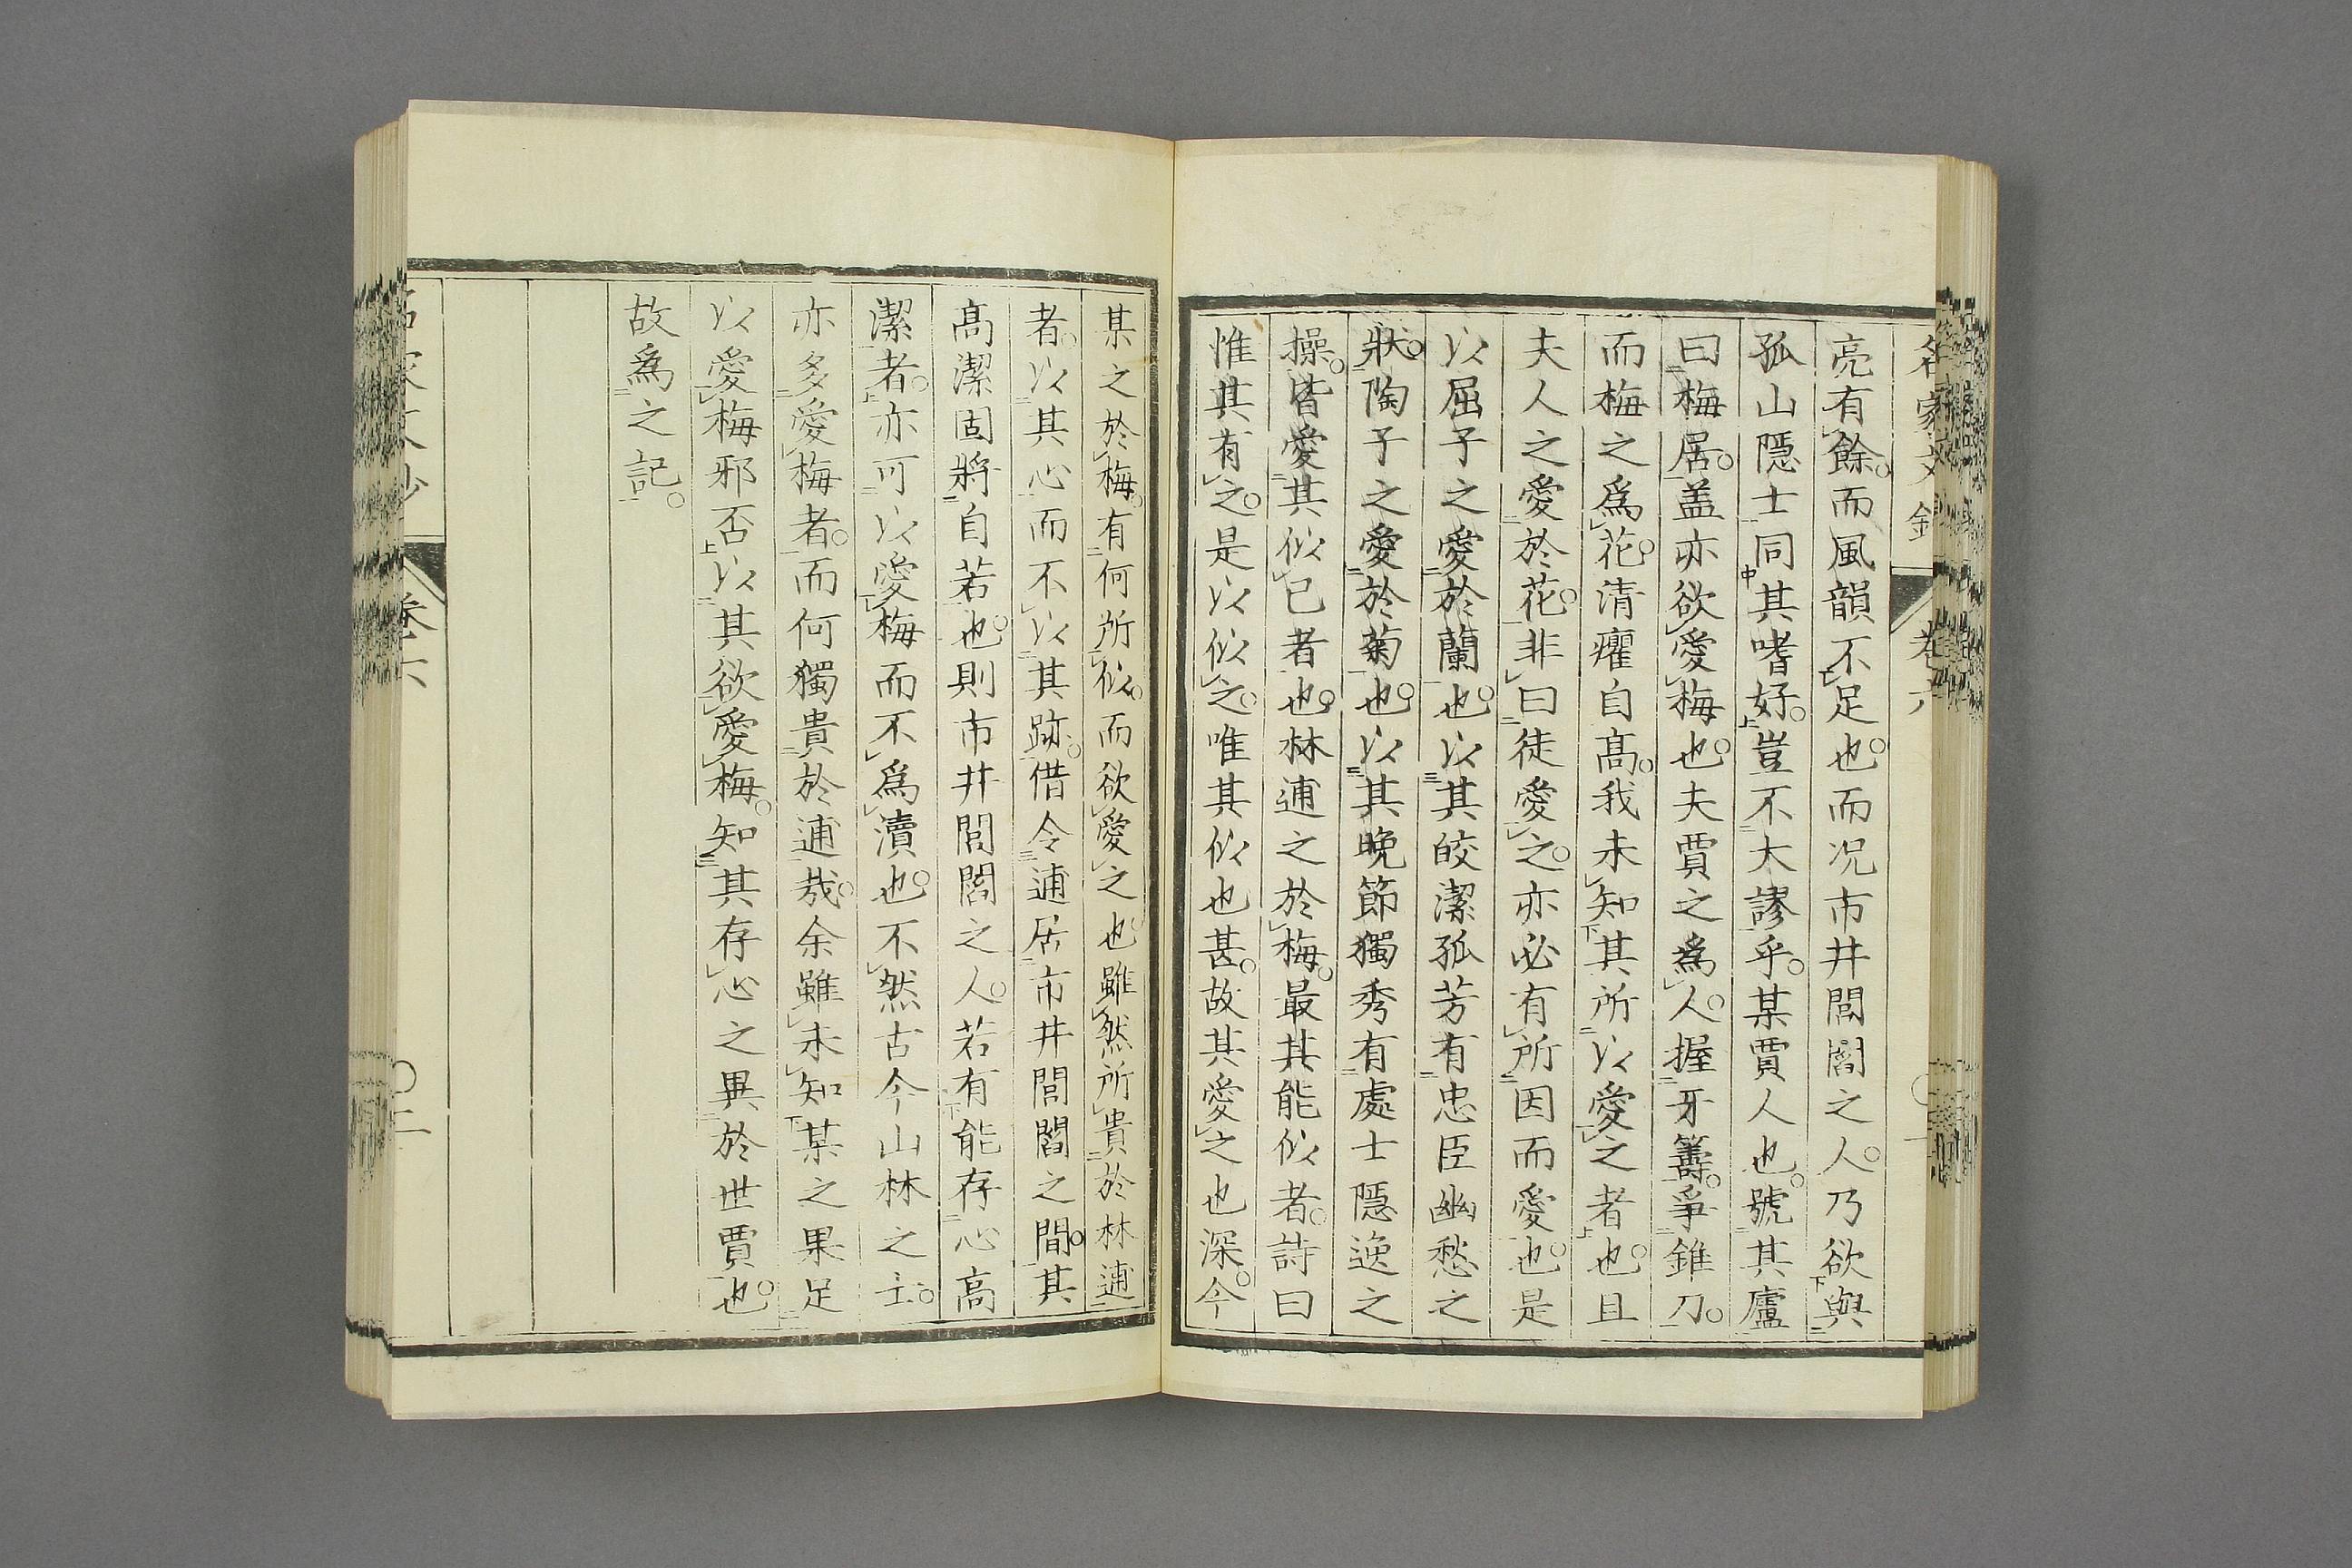 亮有餘。而風韻不足也。而况市井閭閻之人。乃欲與
孤山隱士同其嗜好。豈不大謬乎。某賈人也。號其廬
曰梅居。盖亦欲愛梅也。夫賈之爲人。握牙籌。爭錐刀。
而梅之爲花。清癯自高。我未知其所以愛之者也。且
夫人之愛於花。非曰徒愛之。亦必有所因而愛也。是
以屈子之愛於蘭也。以其皎潔孤芳有忠臣幽愁之
狀。陶子之愛於菊也。以其晩節獨秀有處士隱逸之
操。皆愛其似己者也。林逋之於梅。最其能似者。詩曰
惟其有之。是以似之。唯其似也甚。故其愛之也深。今
某之於梅。有何所似。而欲愛之也。雖然所貴於林逋
者。以其心而不以其跡。借令逋居市井閭閻之間。其
高潔固將自若也。則市井閭閻之人。若有能存心高
潔者。亦可以愛梅而不爲瀆也。不然古今山林之士。
亦多愛梅者。而何獨貴於逋哉。余雖未知某之果足
以愛梅邪否。以其欲愛梅。知其存心之異於世賈也。
故爲之記。
卷六